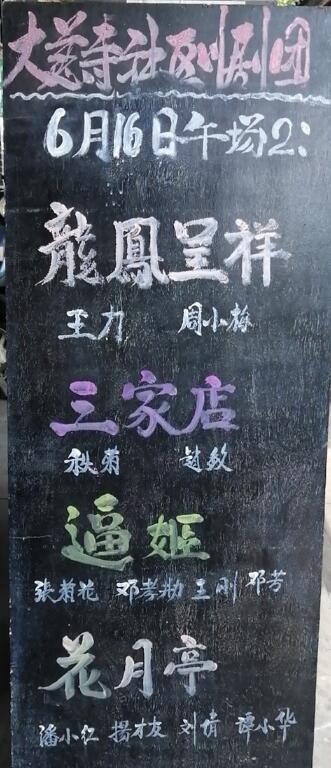 大慈寺社区川剧团
6月16日午场2:
龍鳳呈祥
王力 周小梅
三家店
秋菊 赵敏
逼姬
張菊花 邓孝勛 王刚 邓芳
花月亭
潘小红 揚才友 刘倩 谭小华